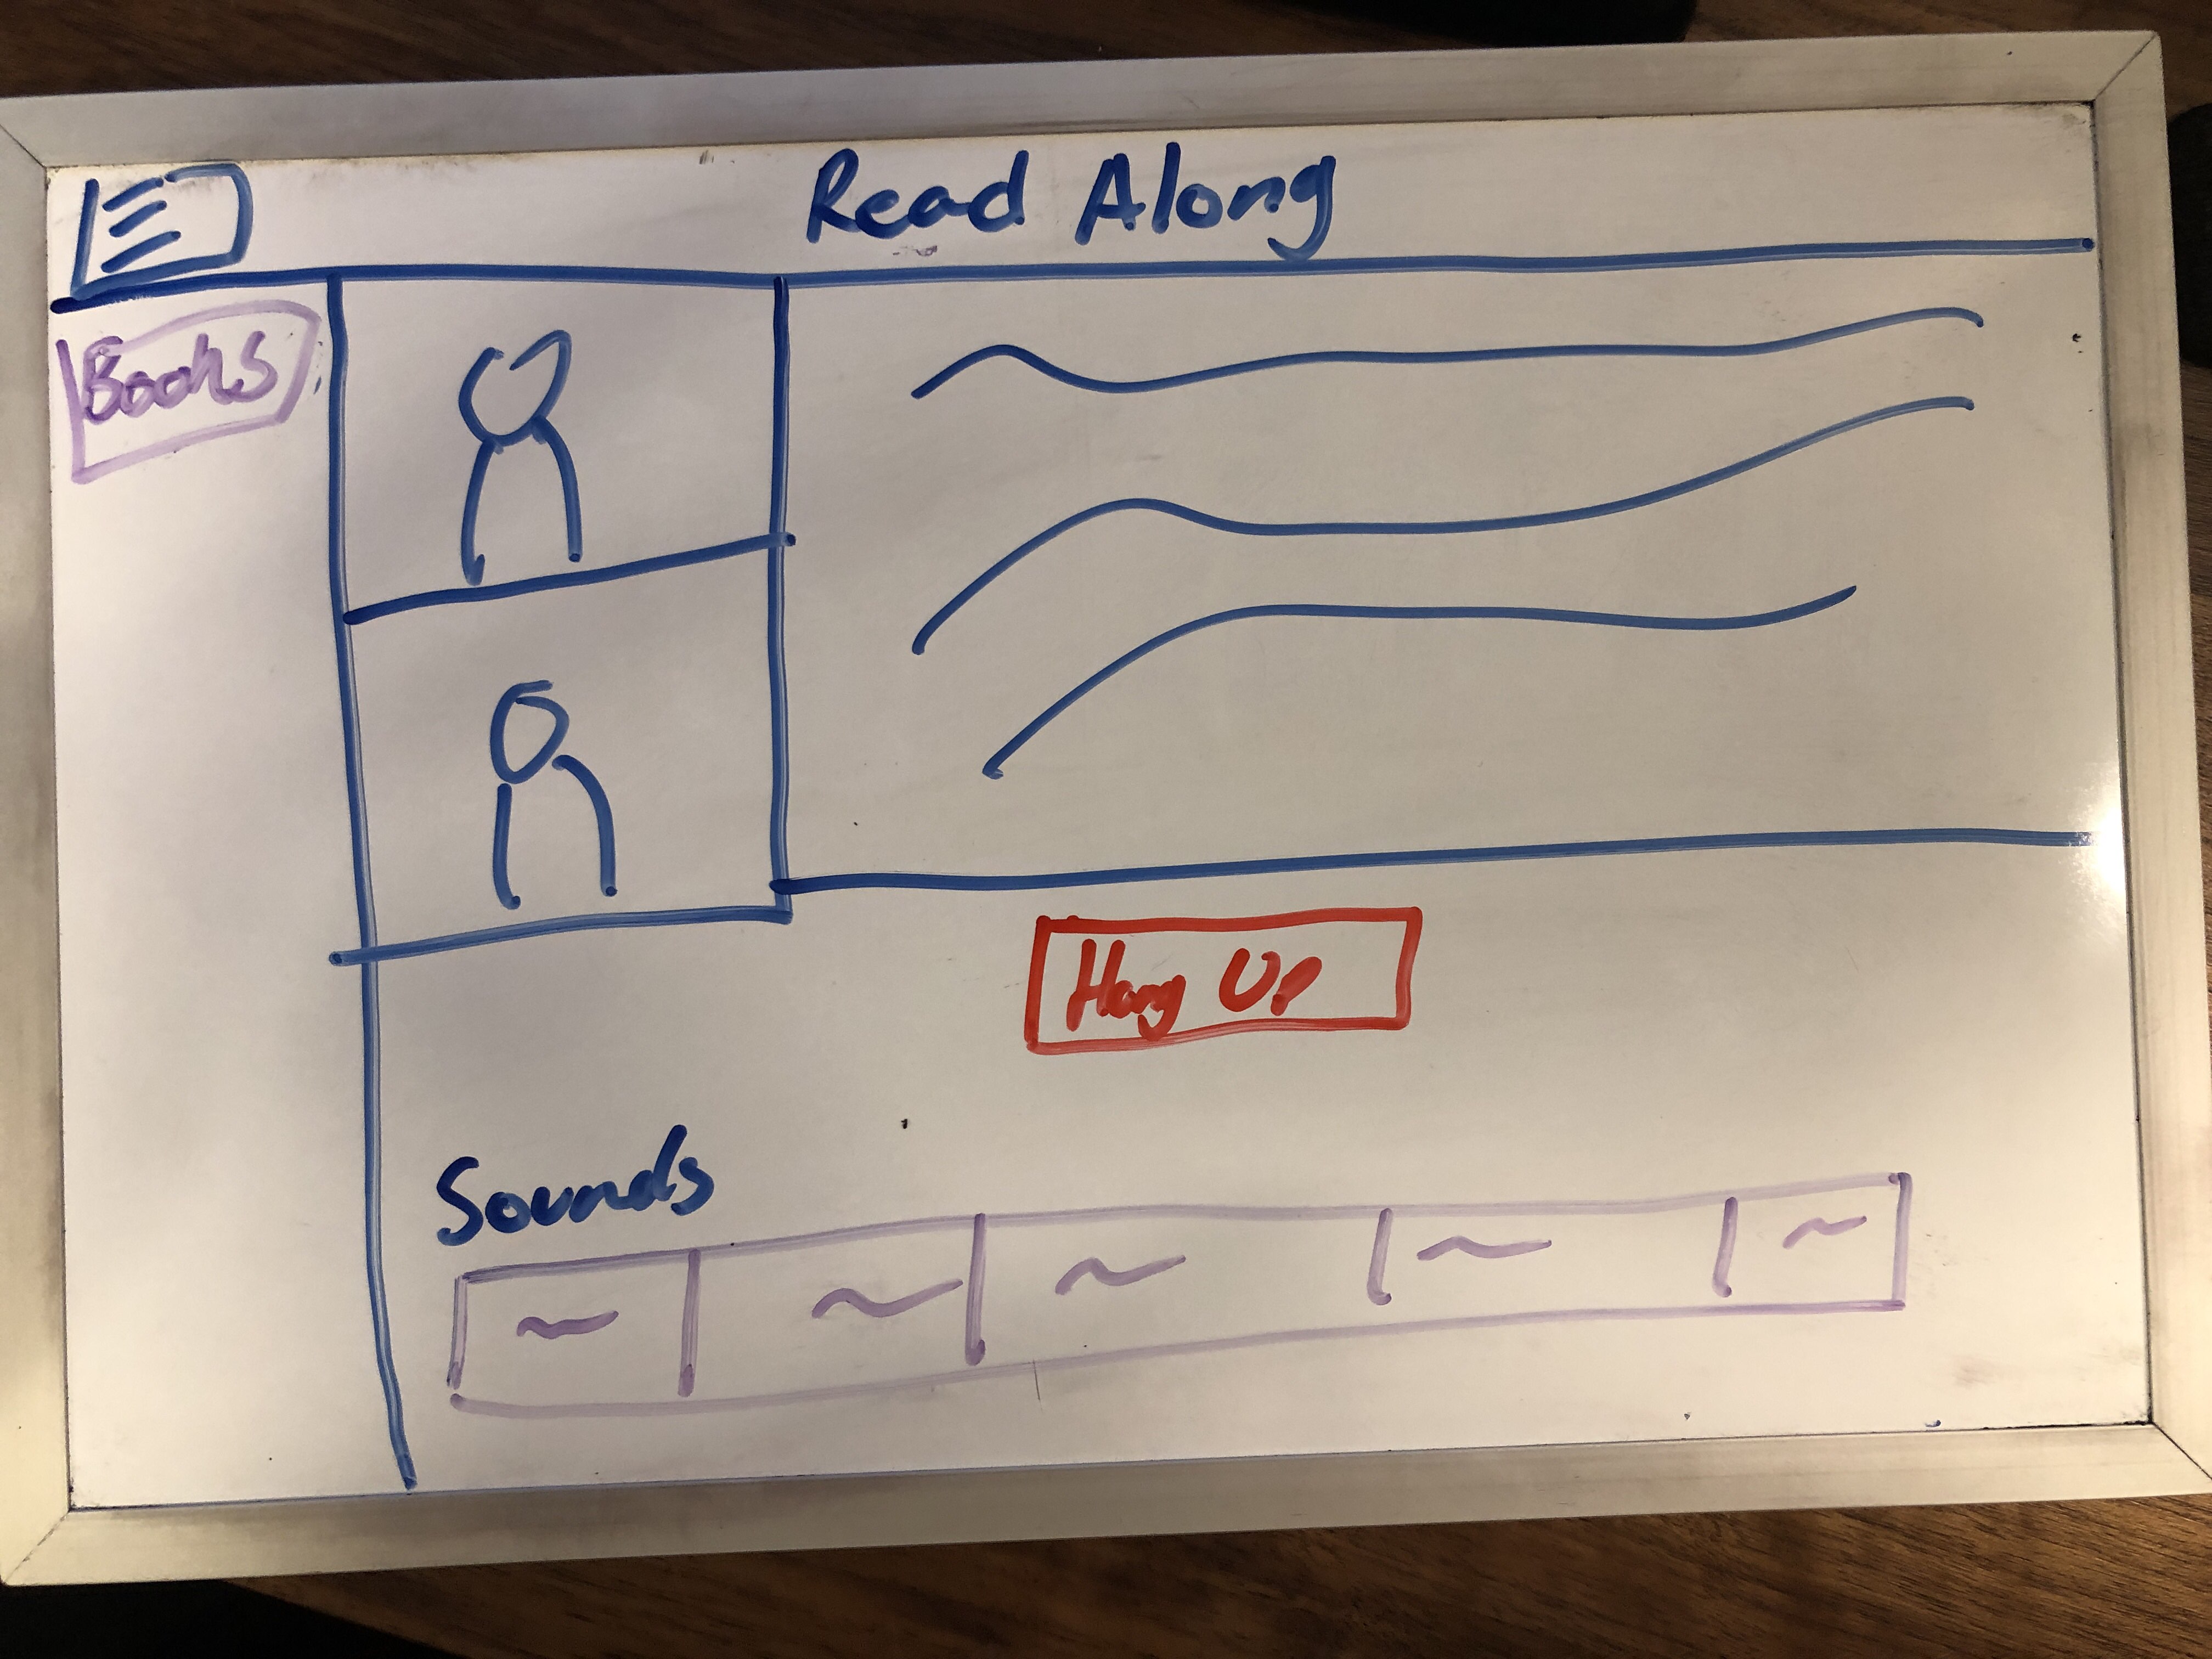 Read Along
Books
Hang Up
Sounds